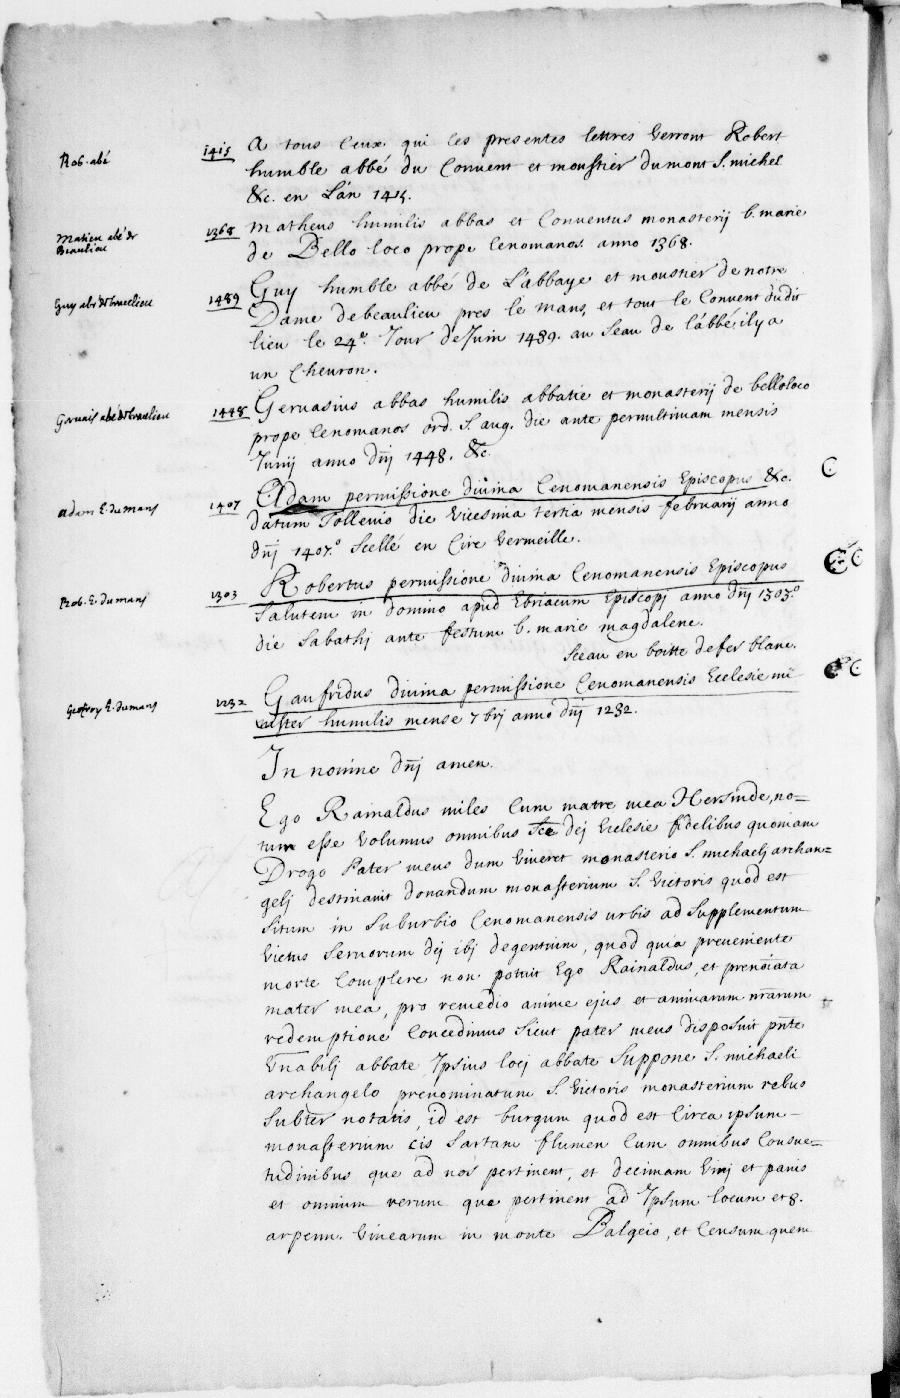 Rob. abé
1415 A tous ceux qui ces presentes lettres verront Robert
humble abbé du Convent et moustier du mont S. michel
&c. en L'an 1415.
Matieu abé de
Beaulieu
1368 Matheus humilis abbas et Conventus monasterij b. marie
de Bello loco prope Cenomanos. anno 1368.
Guy abé de beaulieu
1489 Guy humble abbé de L'abbaye et moustier de notre
Dame de beaulieu pres le mans, et tout le Convent dudit
lieu le 24e. Jour de Juin 1489. au seau de l'abbé il y a
un Chevron.
Gervais abé de beaulieu
1448 Gervasius abbas humilis abbatie et monasterij de belloloco
prope Cenomanos ord. S. aug. die ante penultimam mensis
Junij anno dñj 1448. &c.
adam E. du mans
1407 Adam permissione divina Cenomanensis Episcopus &c. C
datum Tollevio die vicesima tertia mensis februarij anno
dñj 1407.o Scellé en Cire vermeille.
Rob. E. du mans
1303 Robertus permissione divina Cenomanensis Episcopus C C
Salutem in domino apud Ebriacum Episcopj anno dñj 1303.o
die Sabathj ante festum b. marie magdalene.
Sceau en boitte de fer blanc.
Geofroy E. du mans
1232 Gaufridus divina permissione Cenomanensis Ecclesie mi C C
nister humilis mense 7brj anno dñj 1232.
In nomine dñj amen.
Ego Rainaldus miles Cum matre mea Hersinde, no=
tum esse volumus omnibus Sce dej Ecclesie fidelibus quoniam
Drogo Pater meus dum viveret monasterio S. michaelj archan=
gelj destinavit donandum monasterium S. Victoris quod est
situm in Suburbio Cenomanensis urbis ad Supplementum
victus Servorum dej ibj degentium, quod quia preveniente
morte Complere non potuit Ego Rainaldus, et prenoiata
mater mea, pro remedio anime ejus et animarum nrarum
redemptione Concedimus sicut pater meus disposuit pnte
Vnabilj abbate Ipsius locj abbate Suppone S. michaeli
archangelo prenominatum S. Victoris monasterium rebus
Subter notatis, id est burgum quod est Circa ipsum
monasterium cis Sartam flumen Cum omnibus Consue=
tudinibus que ad nos pertinent, et decimam vinj et panis
et omnium rerum que pertinent ad Ipsum locum et 8.
arpenn. vinearum in monte Balgeio, et Censum quem